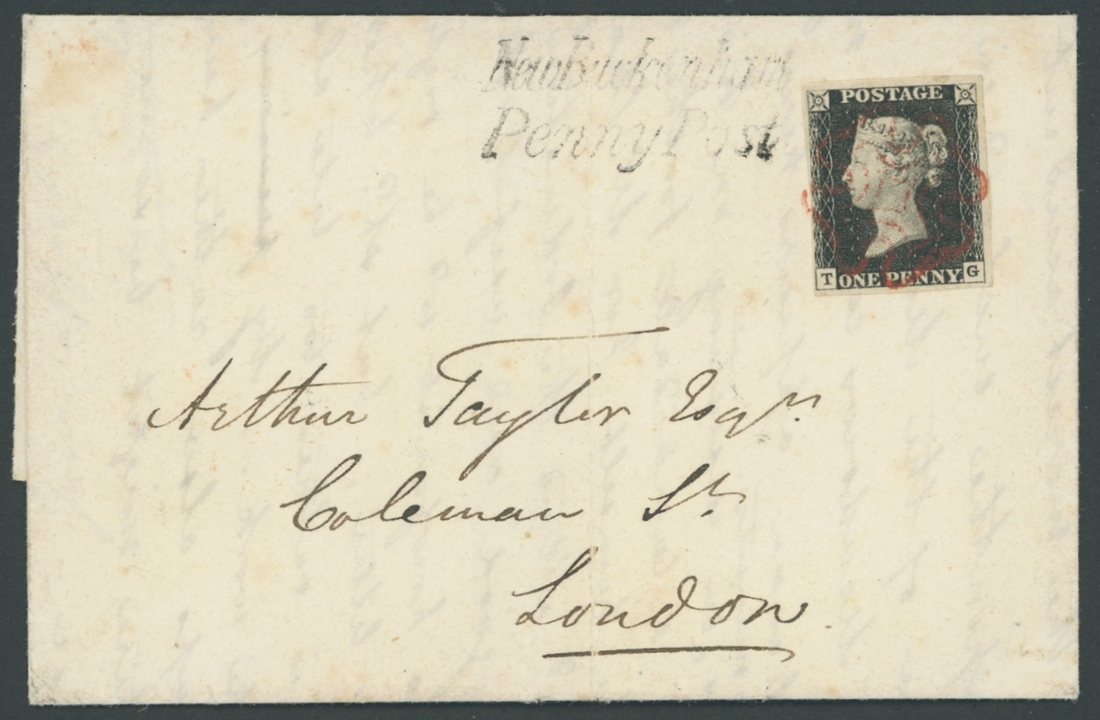 New Buckenham
Penny Post
POSTAGE
T ONE PENNY. G
Arthur Taylor Esqre
Coleman St
London